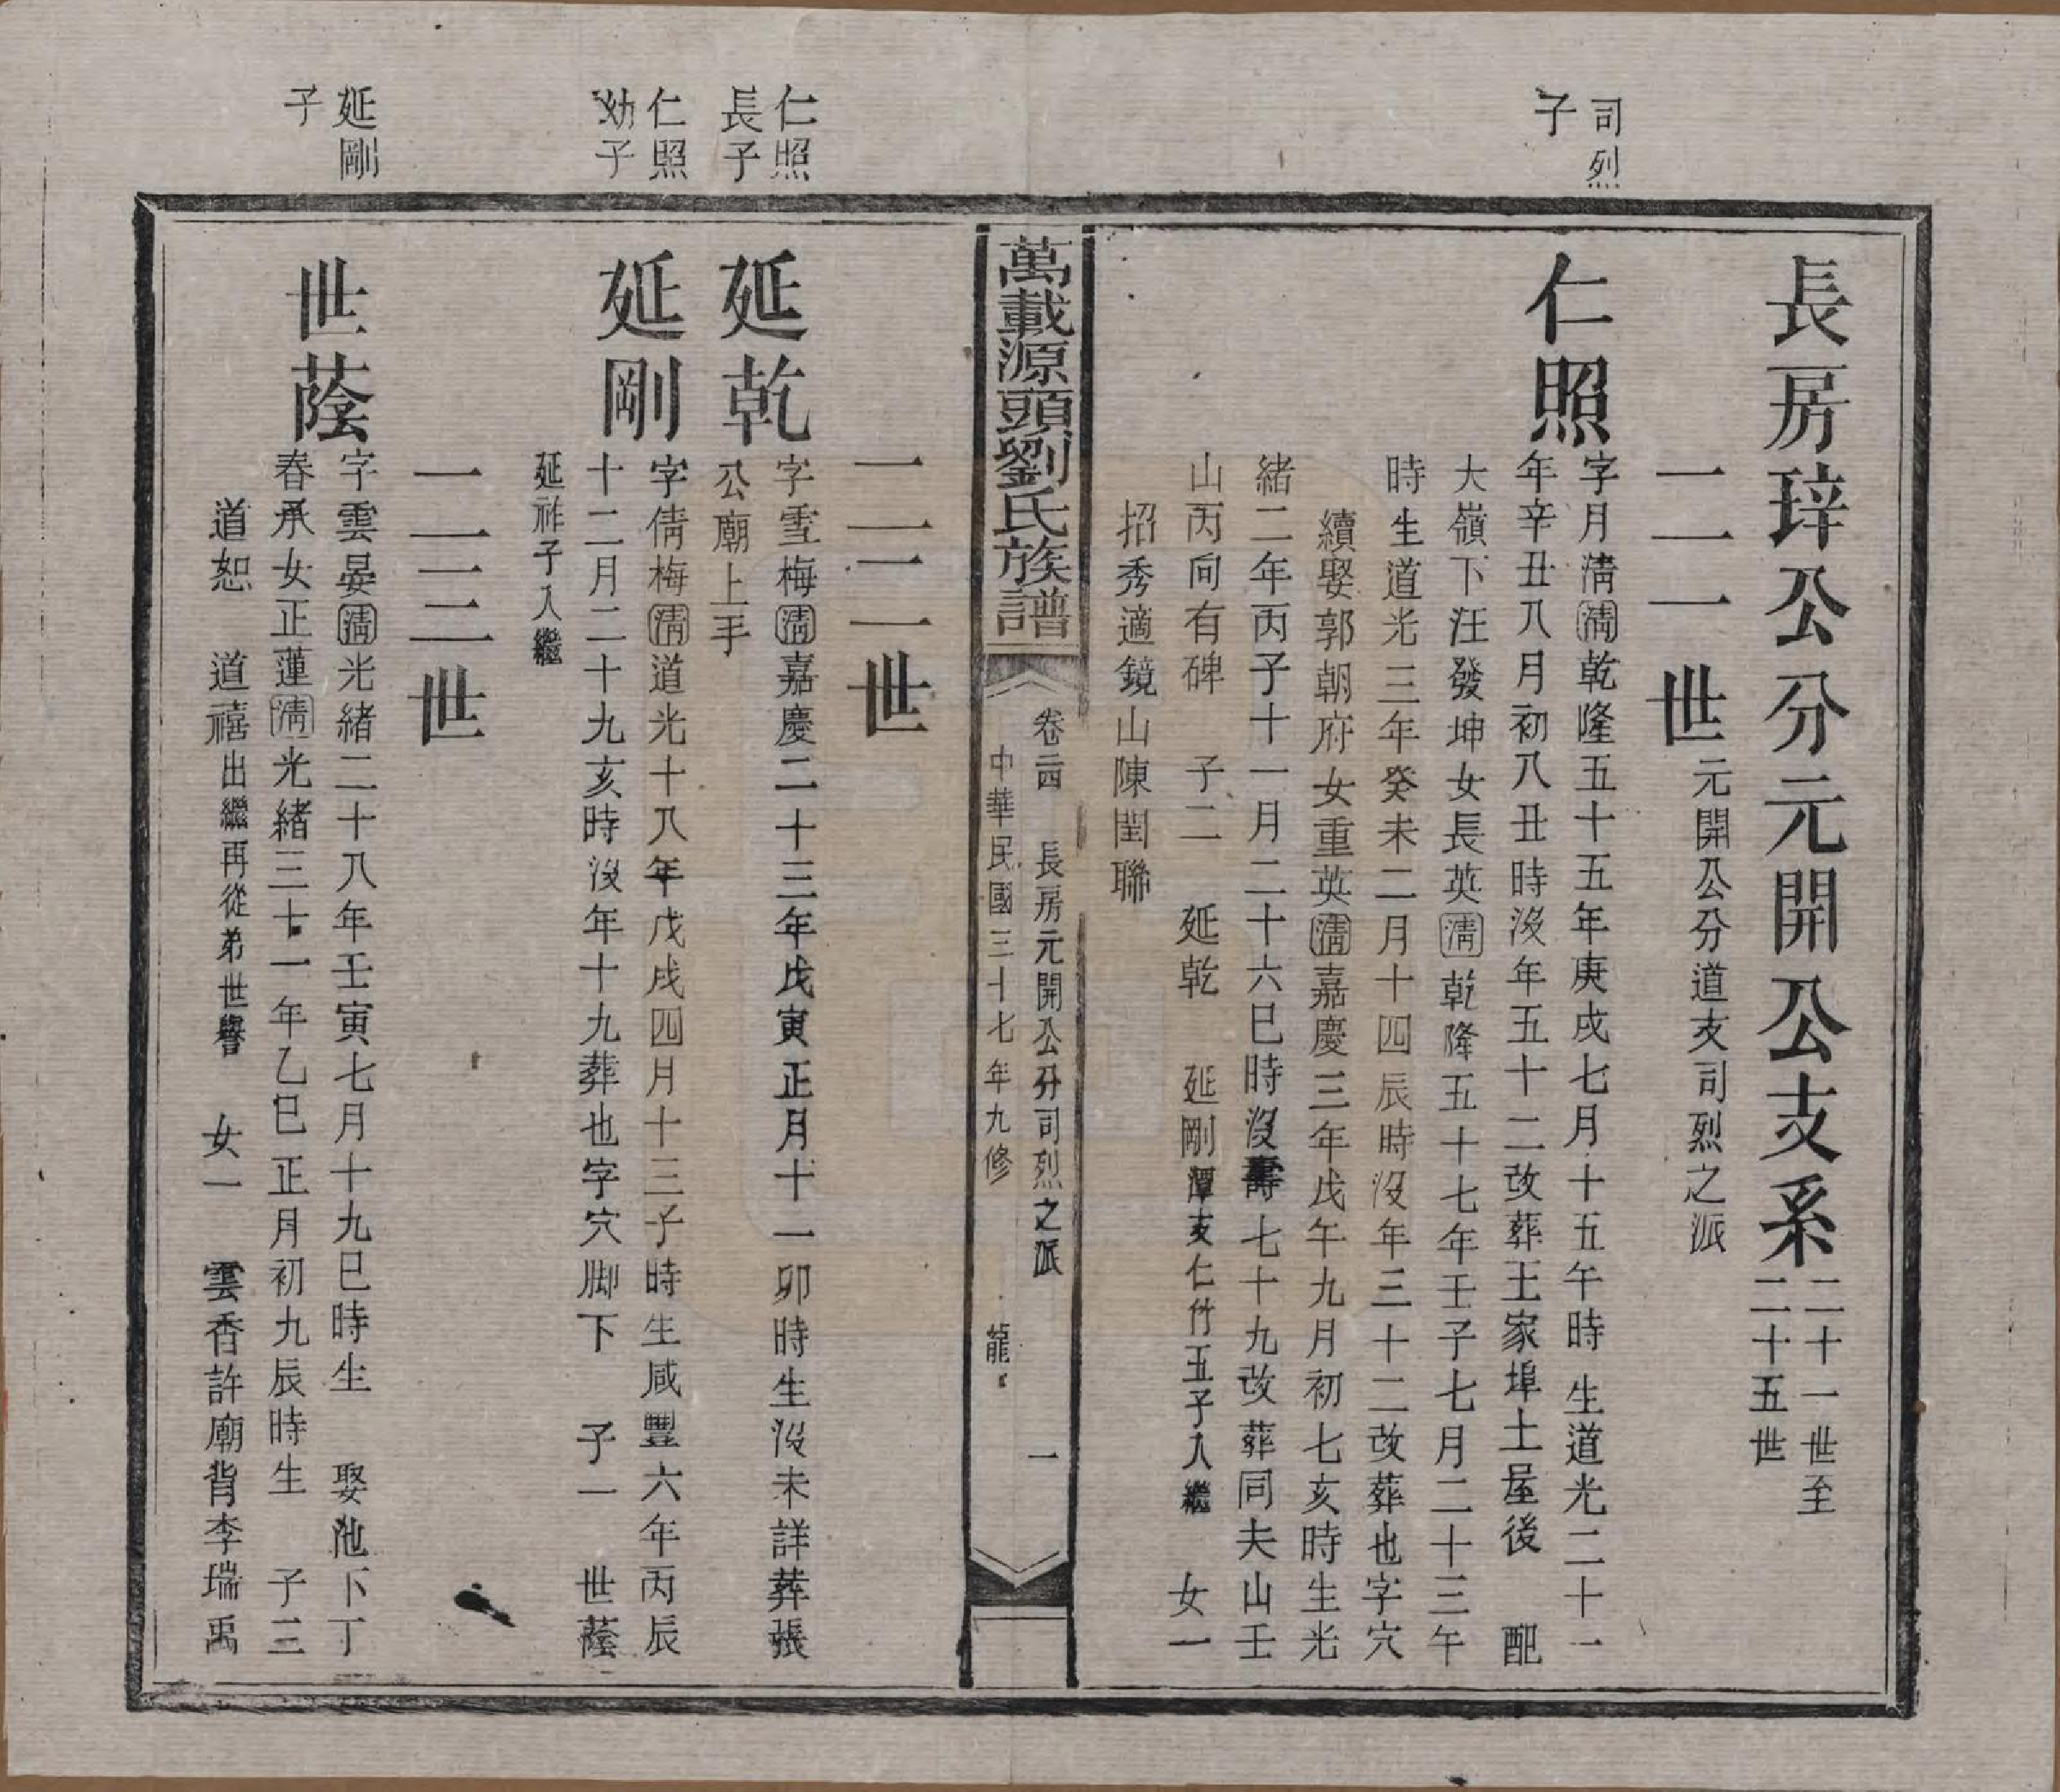 長房琒公分元開公支系二十一世至
二十五世
二一世元開公分道支司烈之派
司烈
子
仁照
字月清淸乾隆五十五年庚戌七月十五午時生道光二十一
年辛丑八月初八丑時沒年五十二改葬王家埠土屋後 配
大嶺下汪發坤女長英淸乾隆五十七年壬子七月二十三午
時生道光三年癸未二月十四辰時沒年三十二改葬也字穴
續娶郭朝府女重英淸嘉慶三年戊午九月初七亥時生光
緒二年丙子十一月二十六巳時沒壽七十九改葬同夫山壬
山丙向有碑 子二 延乾 延剛潭支仁竹五子入繼 女一
招秀適鏡山陳閏聯
萬載源頭劉氏族譜
卷二四 長房元開公分司烈之派 一
中華民國三十七年九修 龍
二二世
仁照
長子
延乾
字雪梅淸嘉慶二十三年戊寅正月十一卯時生沒未詳葬張
公廟上手
仁照
幼子
延剛
字倩梅淸道光十八年戊戌四月十三子時生咸豐六年丙辰
十二月二十九亥時沒年十九葬也字穴脚下 子一 世蔭
延祚子入繼
二三世
延剛
子
世蔭
字雲晏淸光緒二十八年壬寅七月十九巳時生 娶池下丁
春承女正蓮淸光緒三十一年乙巳正月初九辰時生 子三
道恕 道禧出繼再從弟世譽 女一 雲香許廟背李瑞禹